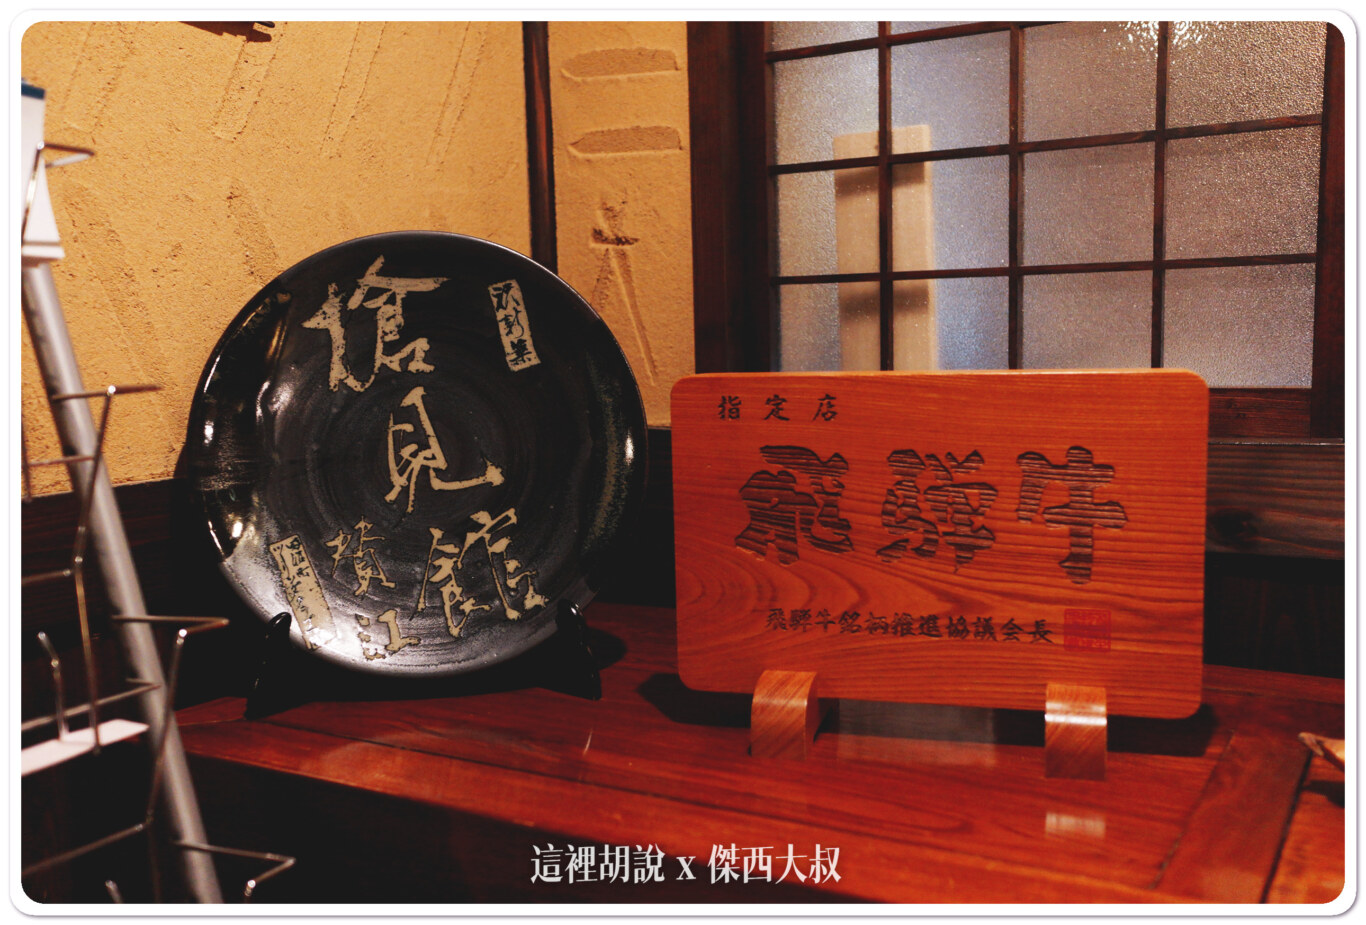 槍見館
贊江
指定店
飛騨牛
飛騨牛銘柄推進協議会長
這裡胡說 x 傑西大叔